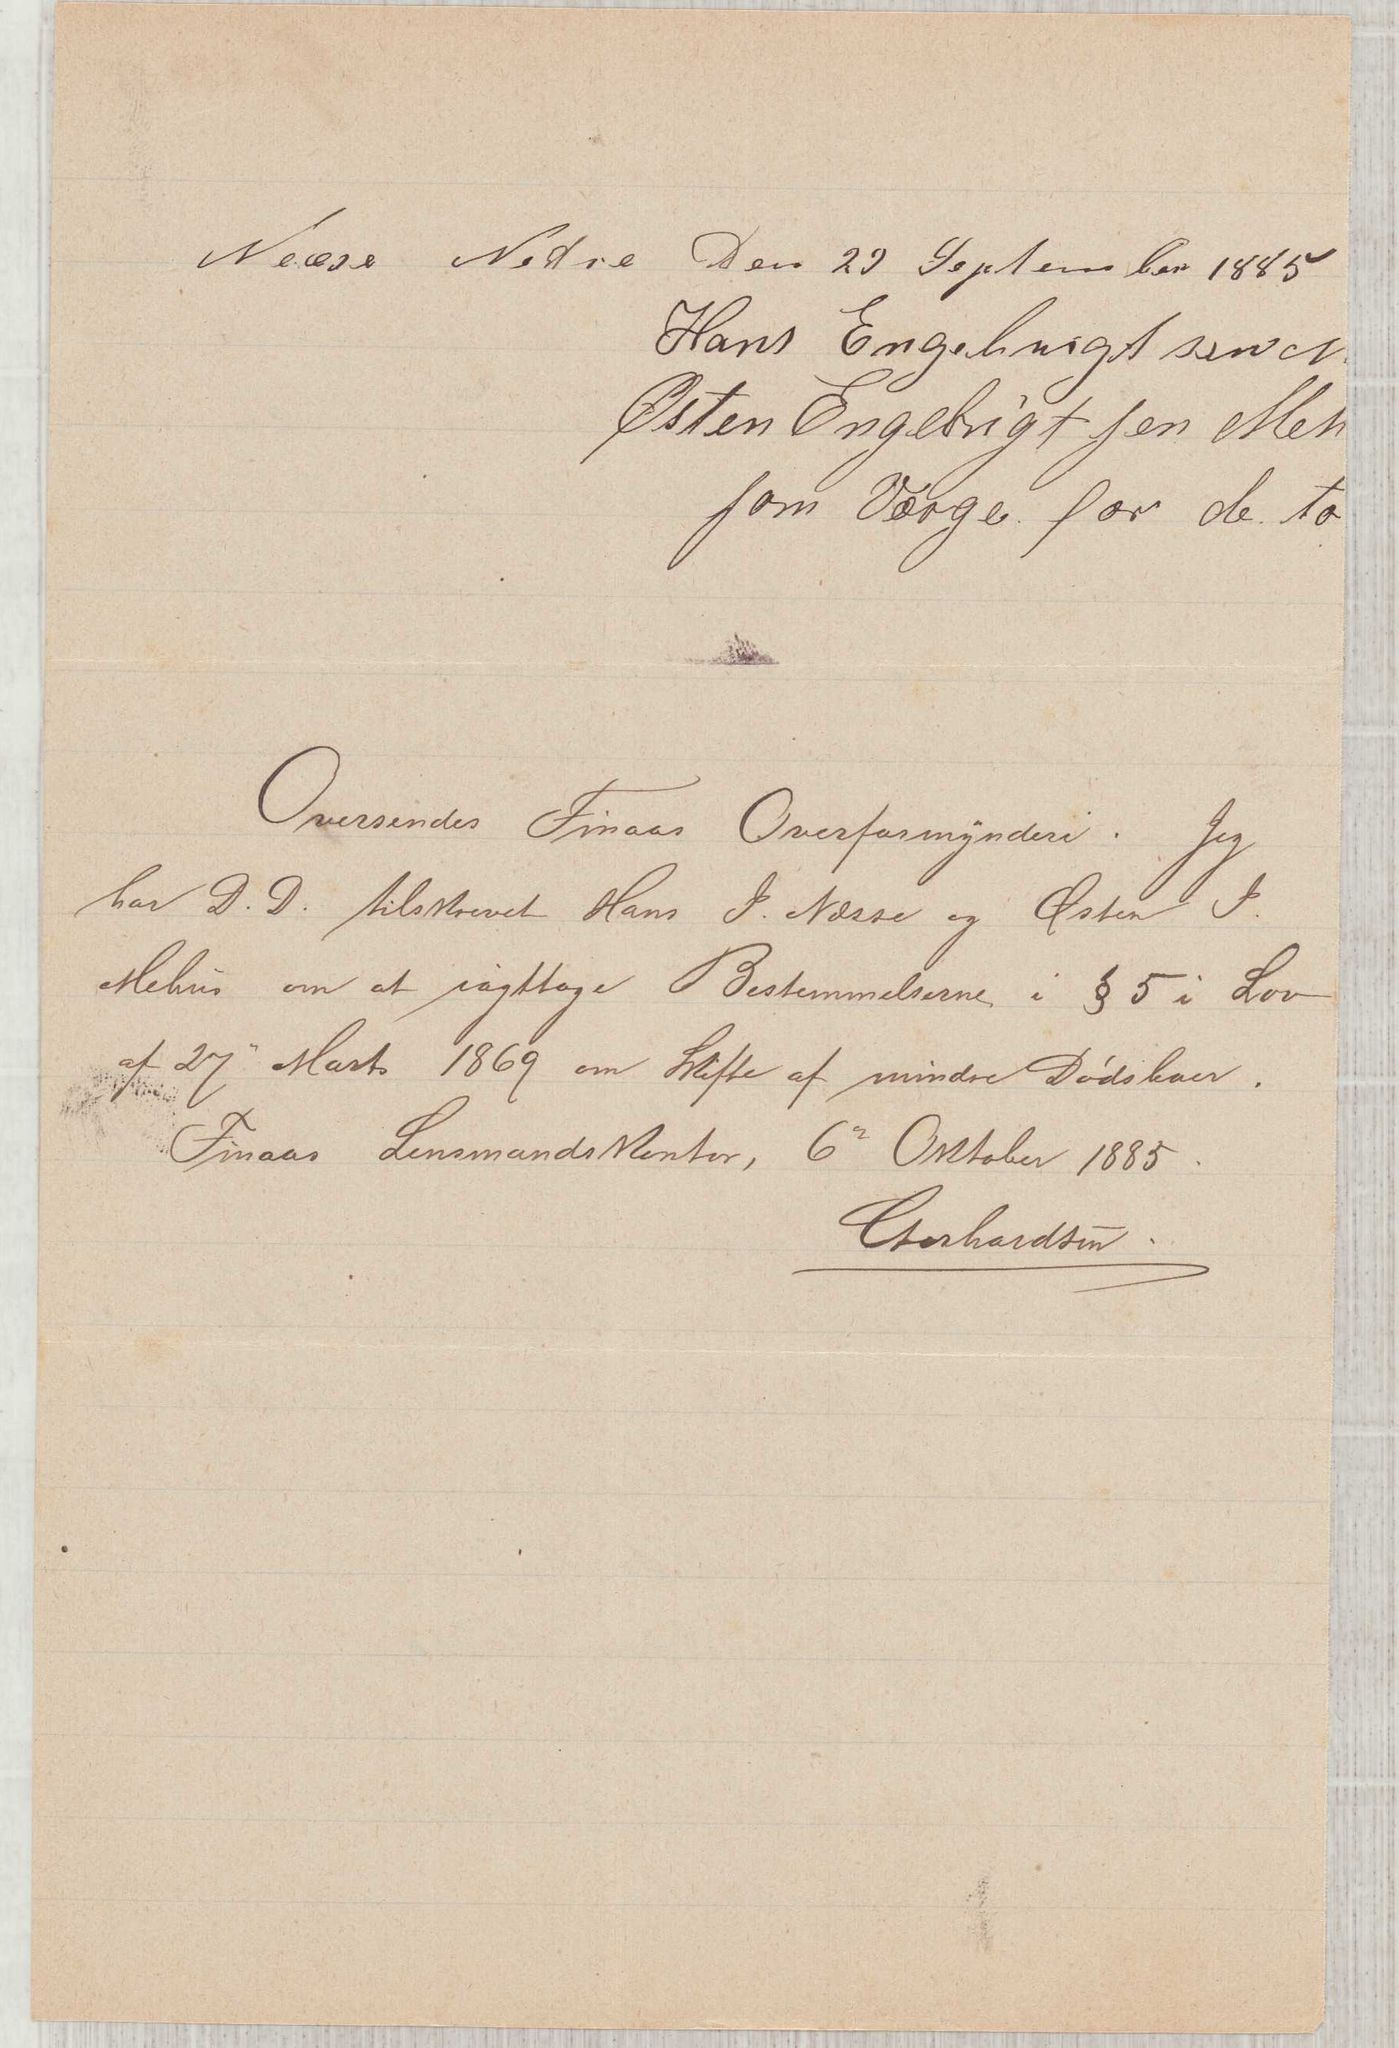 Neæse Nedre Den 29 September 1885
Hans Engebrigtsen N
Østen Engebrigt sen Meh
som Værge for de to
Oversendes Finaas Overformynderi. Jeg
har D. D. tilskrevet Hans I. Næsse og Østen I.
Mehus om at iagttage Bestemmelserne i § 5 i Lov
af 27" Marts 1869 om Skifte af mindre Dødsboer.
Finaas Lensmandskontor, 6 Oktober 1885.
Gerhardsen.